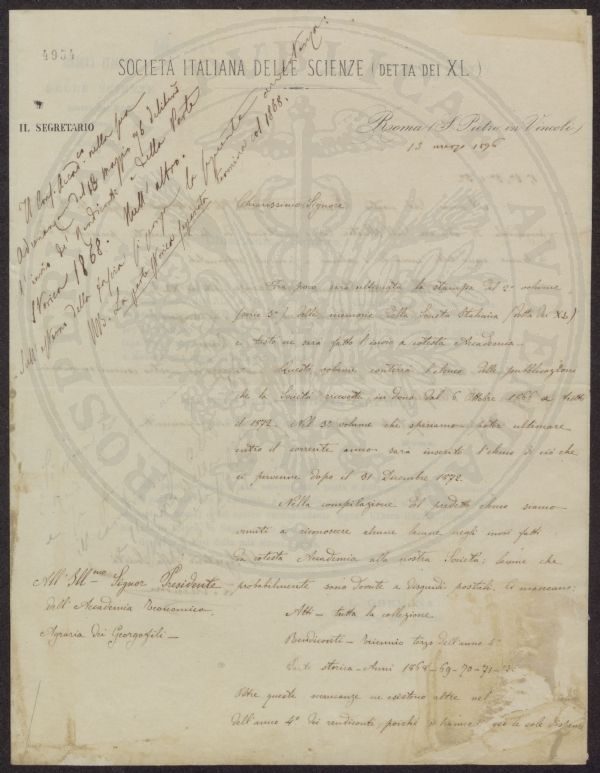 4954
SOCIETÀ ITALIANA DELLE SCIENZE (DETTA DEI XL.)
IL SEGRETARIO
Roma (S. Pietro in Vincoli)
13 marzo 1876
Il Cons. Accad.co nella sua
Adunanza del maggio 76 deliberò
l'invio dei Rendiconti e della Parte
Storica 1868. Null'altro.
NB. La parte storica termina col 1868.
Chiarissimo Signore
Fra poco sarà ultimata la stampa del 2º volume
serie 3ª delle memorie della Società Italiana (detta dei XL)
e tosto ne sarà fatto l'invio a cotesta Accademia.
Questo volume conterrà l'elenco delle pubblicazioni
che la Società ricevette in dono dal 6 Ottobre 1866 a tutto
il 1872. Nel 3º volume che speriamo poter ultimare
entro il corrente anno sarà inserito l'elenco di ciò che
ci pervenne dopo il 31 Dicembre 1872.
Nella compilazione del predetto elenco siamo
venuti a riconoscere alcune lacune negli invii fatti
da cotesta Accademia alla nostra Società; lacune che
probabilmente sono dovute a disguidi postali. Ci mancano:
All' Ill.mo Signor Presidente
dell'Accademia Economico
Agraria dei Georgofili
Atti - tutta la collezione
Rendiconti - Triennio terzo dell'anno 4º
Parte storica - Anni 1868-69-70-71-72
Oltre queste mancanze ne esistono altre nel
dell'anno 4º dei rendiconti poichè si hanno le sole dispense